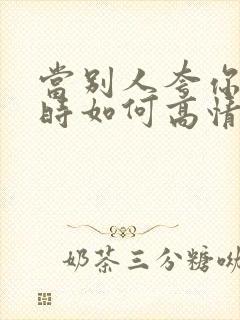 當別人夸你
時如何高情
奶茶三分糖呦